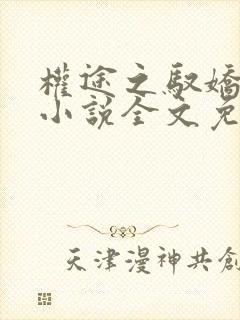 權途之馭嬌
小說全文免
天津漫神共創